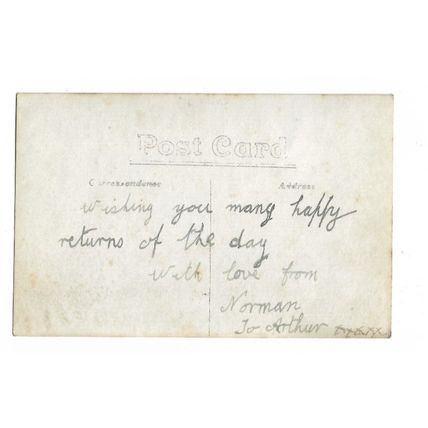 Post Card
Correspondence Address
Wishing you many happy
returns of the day
With love from
Norman
To Arthur xxxxx